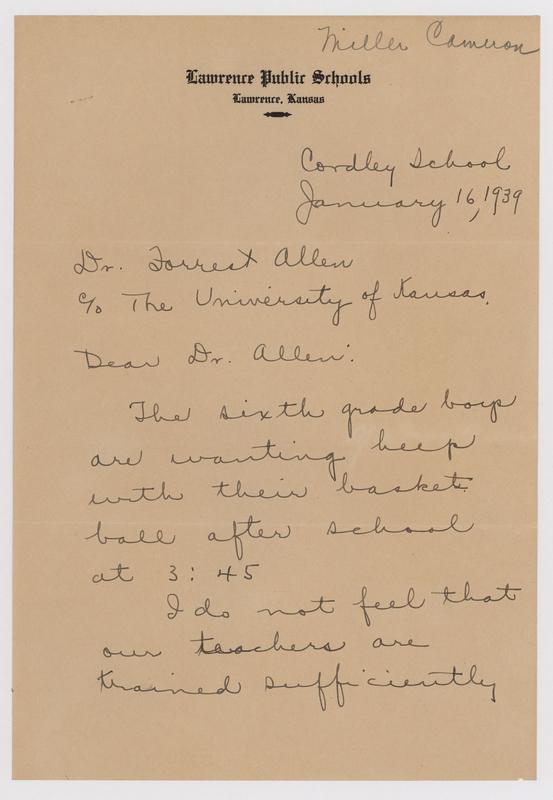 Miller Cameron
Lawrence Public Schools
Lawrence, Kansas
Cordley School
January 16, 1939
Dr. Forrest Allen
c/o The University of Kansas.
Dear Dr. Allen:
The sixth grade boys
are wanting help
with their basket
ball after school
at 3:45
I do not feel that
our teachers are
trained sufficiently